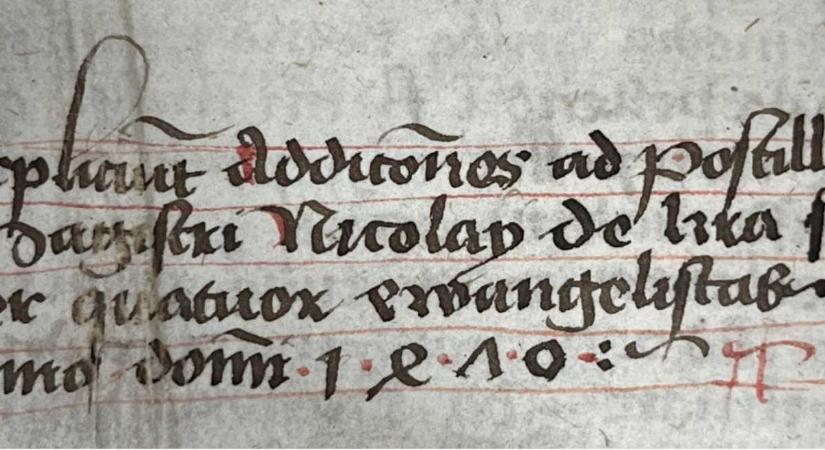 xpliciūt Addicōnes ad Postill
Magistri Nicolay de lira s
er quatuor ewangelistas
nno domī · 1 · 4 · 7 · 0 :